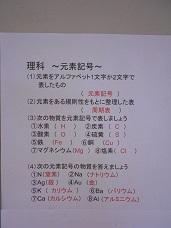 理科 ～元素記号～
(1)元素をアルファベット1文字か2文字で
表したもの
(元素記号)
(2)元素をある規則性をもとに整理した表
(周期表)
(3)次の物質を元素記号で表しましょう
①水素 (H) ②炭素 (C)
③酸素 (O) ④硫黄 (S)
⑤鉄 (Fe) ⑥銅 (Cu)
⑦マグネシウム(Mg) ⑧塩素(Cl)
(4)次の元素記号の物質を答えましょう
①N(窒素) ②Na (ナトリウム)
③Ag(銀) ④Au (金)
⑤K (カリウム) ⑥Ba (バリウム)
⑦Ca(カルシウム) ⑧Al(アルミニウム)